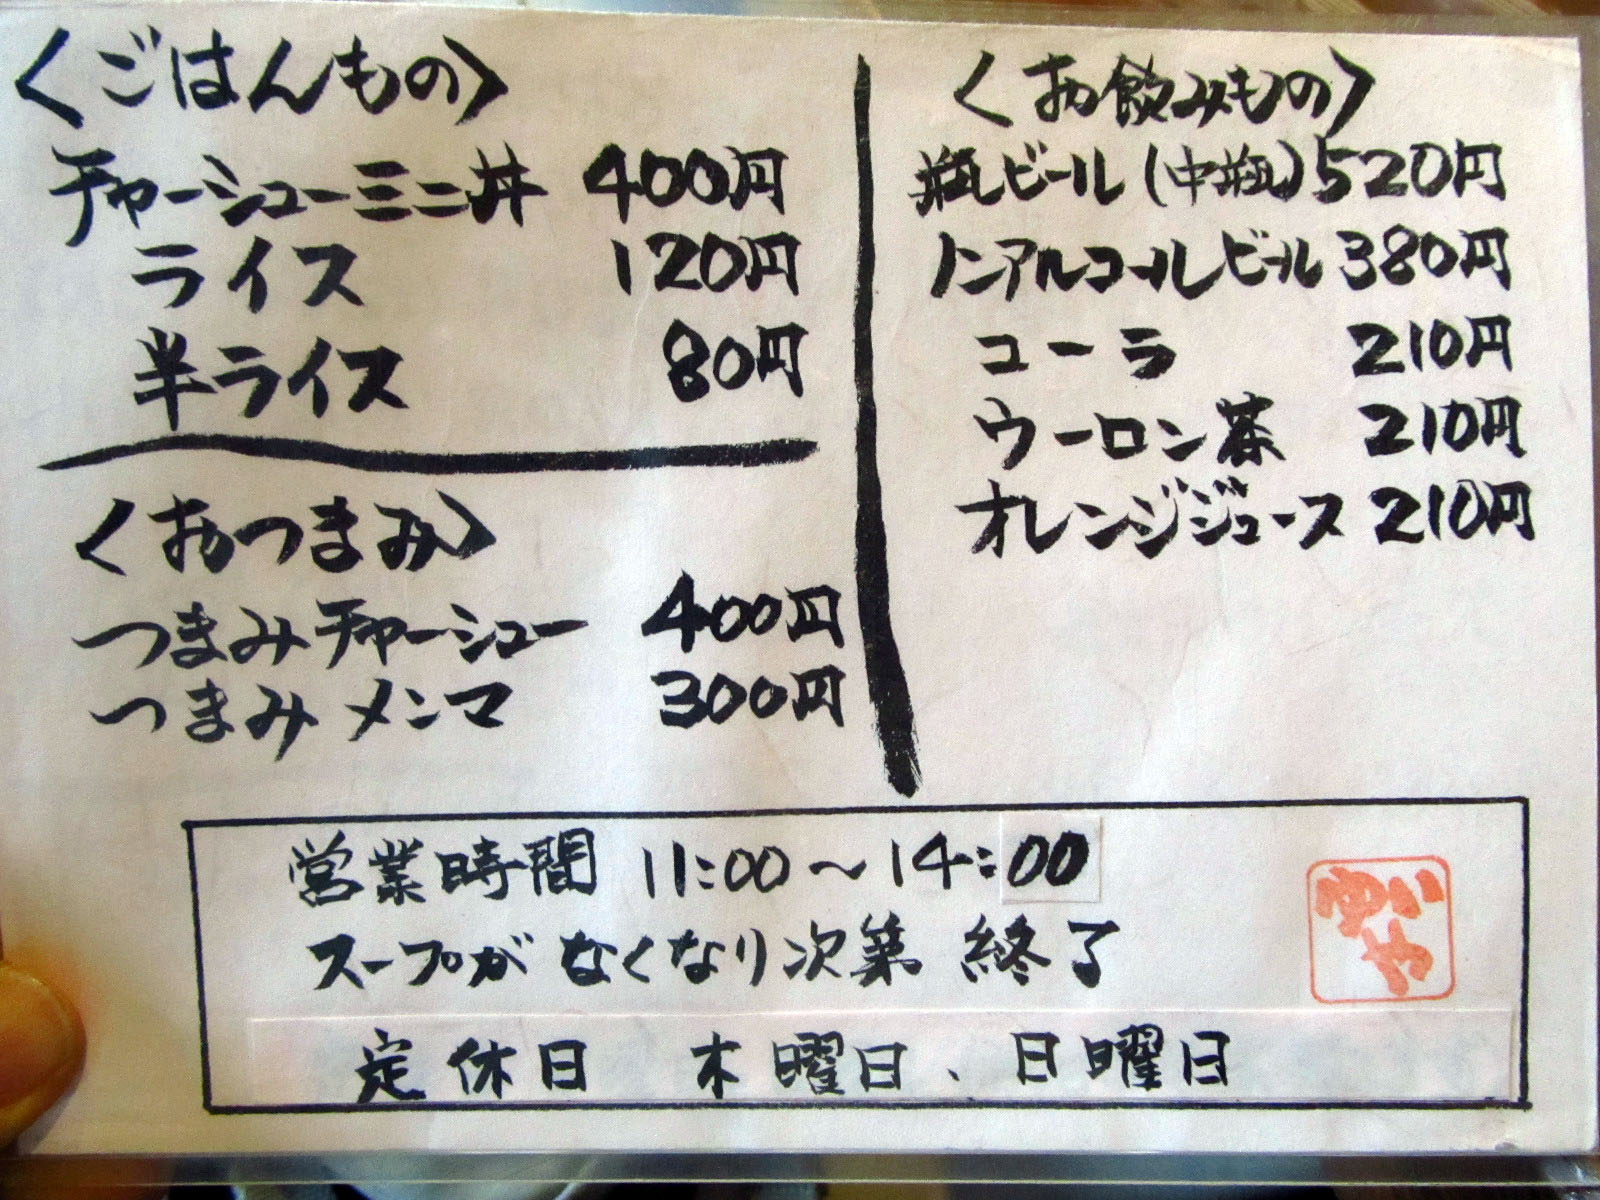 〈ごはんもの〉
チャーシューミニ丼 400円
ライス 120円
半ライス 80円
〈おつまみ〉
つまみチャーシュー 400円
つまみメンマ 300円
〈お飲みもの〉
瓶ビール(中瓶) 520円
ノンアルコールビール 380円
コーラ 210円
ウーロン茶 210円
オレンジジュース 210円
営業時間 11:00〜14:00
スープがなくなり次第 終了
定休日 木曜日、日曜日
ゆい
や